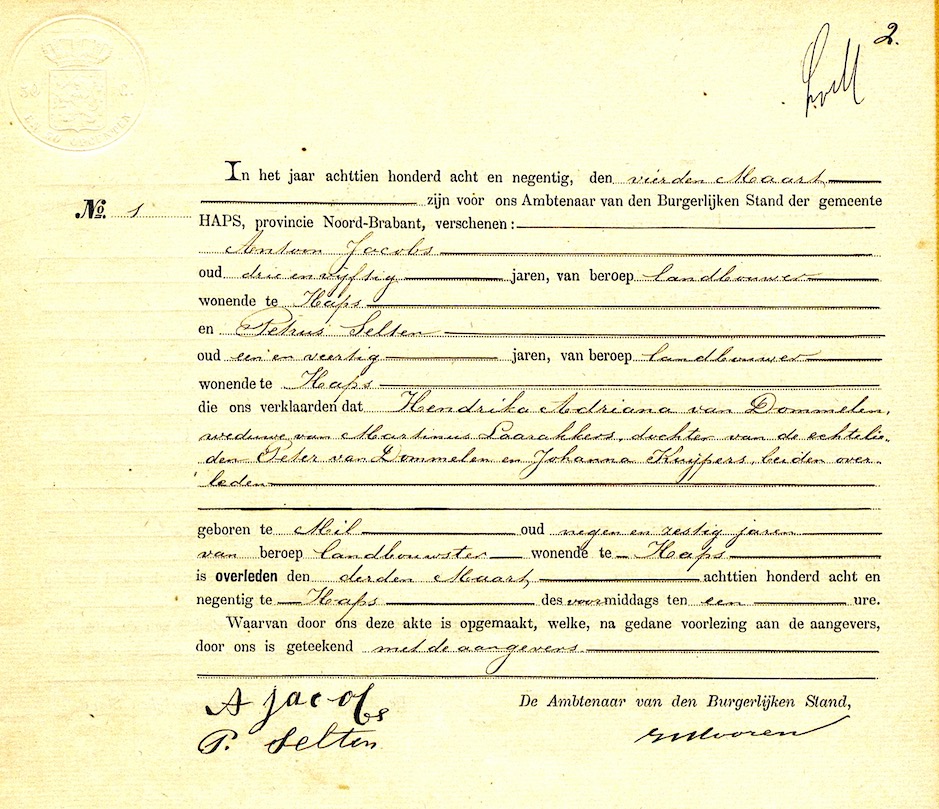 2.
50 C.
In het jaar achttien honderd acht en negentig, den vierden Maart
zijn voor ons Ambtenaar van den Burgerlijken Stand der gemeente
No. 1
HAPS, provincie Noord-Brabant, verschenen:
Antoon Jacobs
oud drie en vijftig jaren, van beroep landbouwer
wonende te Haps
en Petrus Selten
oud een en veertig jaren, van beroep landbouwer
wonende te Haps
die ons verklaarden dat Hendrika Adriana van Dommelen,
weduwe van Martinus Laarakkers, dochter van de echtelie-
den Peter van Dommelen en Johanna Kuijpers, beiden over-
leden
geboren te Mil oud negen en zestig jaren
van beroep landbouwster wonende te Haps
is overleden den derden Maart achttien honderd acht en
negentig te Haps des voormiddags ten een ure.
Waarvan door ons deze akte is opgemaakt, welke, na gedane voorlezing aan de aangevers,
door ons is geteekend met de aangevers
A Jacobs
De Ambtenaar van den Burgerlijken Stand,
P. Selten